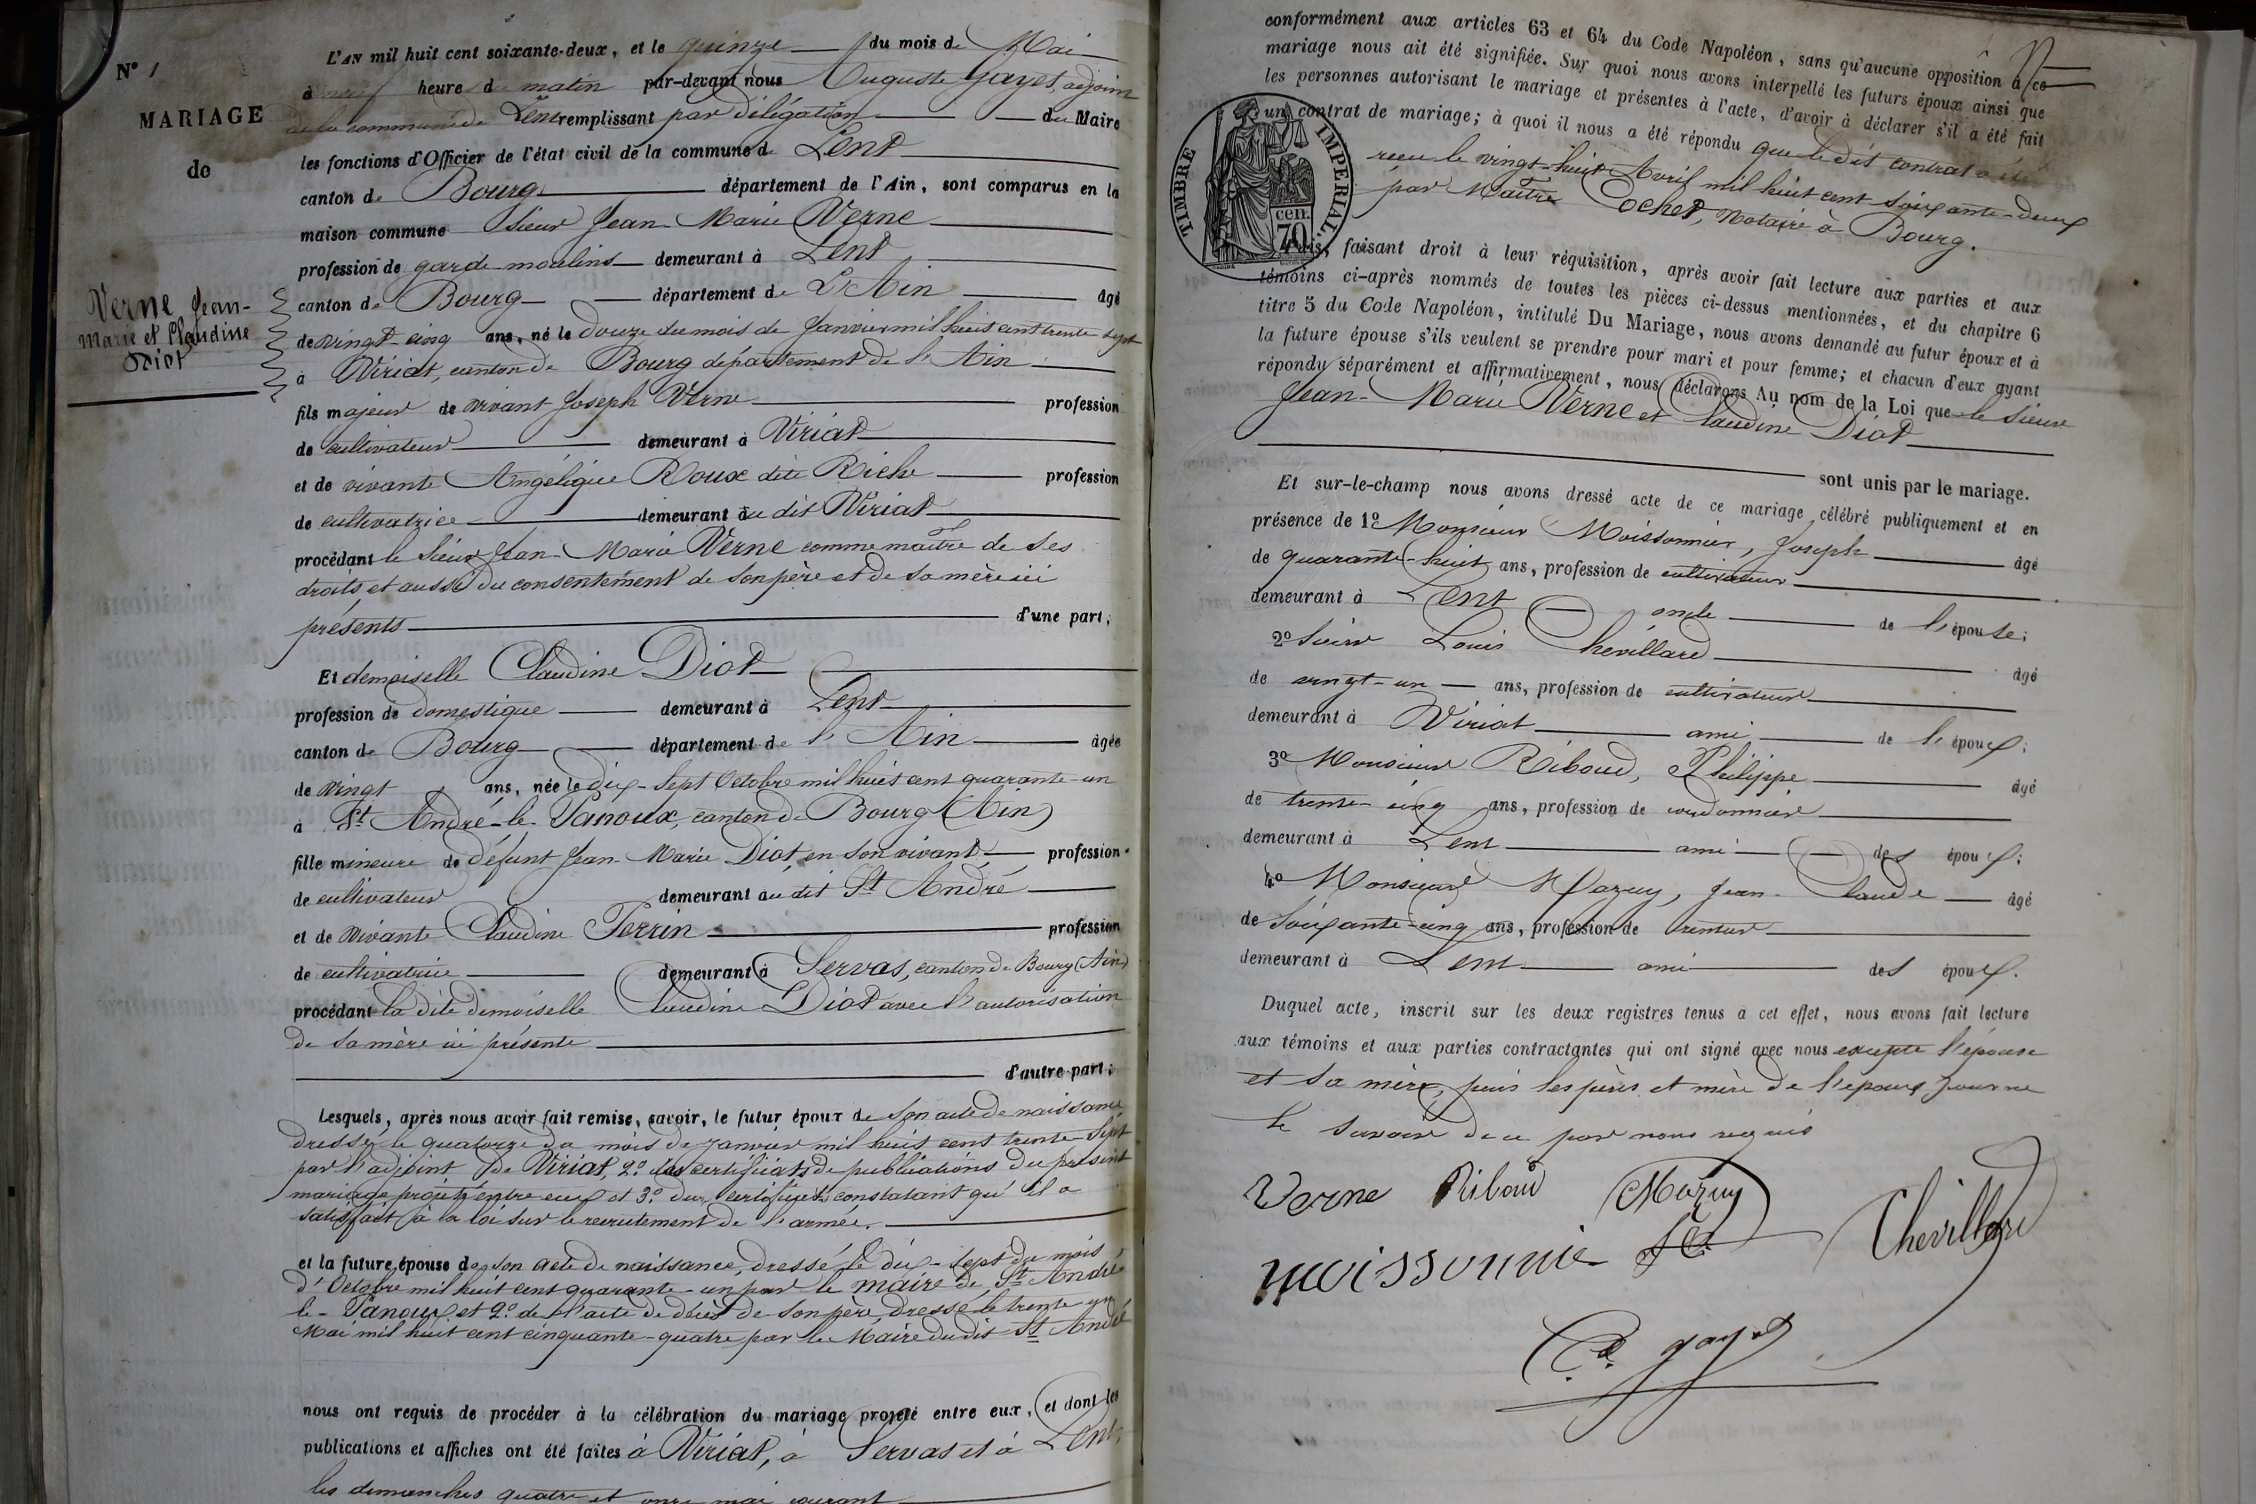 N° 1
MARIAGE
de
Verne Jean-
Marie et Claudine
Diot
L'AN mil huit cent soixante-deux, et le quinze du mois de Mai
à neuf heure du matin par-devant nous Auguste Gayet, adjoint
de la commune de Lent remplissant par délégation du Maire
les fonctions d'Officier de l'état civil de la commune de Lent
canton de Bourg département de l'Ain, sont comparus en la
maison commune Sieur Jean-Marie Verne
profession de garde-moulins demeurant à Lent
canton de Bourg département de L'Ain âgé
de vingt-cinq ans, né le douze du mois de Janvier mil huit cent trente sept
à Viriat, canton de Bourg département de l'Ain
fils majeur de vivant Joseph Verne profession
de cultivateur demeurant à Viriat
et de vivante Angélique Roux dite Riche profession
de cultivatrice demeurant au dit Viriat
procédant le Sieur Jean-Marie Verne comme maître de ses
droits et aussi du consentement de son père et de sa mère ici
présents d'une part;
Et demoiselle Claudine Diot
profession de domestique demeurant à Lent
canton de Bourg département de l'Ain âgée
de vingt ans, née le dix-sept Octobre mil huit cent quarante-un
à St André-le-Panoux, canton de Bourg (Ain)
fille mineure de défunt Jean-Marie Diot, en son vivant profession
de cultivateur demeurant au dit St André
et de vivante Claudine Perrin profession
de cultivatrice demeurant à Servas, canton de Bourg (Ain)
procédant la dite demoiselle Claudine Diot avec l'autorisation
de sa mère ici présente
d'autre part;
Lesquels, après nous avoir fait remise, savoir, le futur époux de son acte de naissance
dressé le quatorze du mois de Janvier mil huit cent trente-sept
par l'adjoint de Viriat, 2° des certificats de publications du présent
mariage projeté entre eux et 3° du certificat constatant qu'il a
satisfait à la loi sur le recrutement de l'armée.
et la future épouse de son acte de naissance, dressé le dix-sept du mois
d'Octobre mil huit cent quarante-un par le maire de St André
le-Panoux et 2° de l'acte de décès de son père dressé le trente un
Mai mil huit cent cinquante-quatre par le Maire du dit St André
nous ont requis de procéder à la célébration du mariage projeté entre eux, et dont les
publications et affiches ont été faites à Viriat, à Servas et à Lent,
les dimanches quatre et onze mai courant
conformément aux articles 63 et 64 du Code Napoléon, sans qu'aucune opposition à ce
mariage nous ait été signifiée. Sur quoi nous avons interpellé les futurs époux ainsi que
les personnes autorisant le mariage et présentes à l'acte, d'avoir à déclarer s'il a été fait
un contrat de mariage; à quoi il nous a été répondu que le dit contrat a été
reçu le vingt-huit Avril mil huit cent soixante-deux
par Maître Cochet, Notaire à Bourg.
TIMBRE IMPERIAL
70 cen.
Puis, faisant droit à leur réquisition, après avoir fait lecture aux parties et aux
témoins ci-après nommés de toutes les pièces ci-dessus mentionnées, et du chapitre 6
titre 5 du Code Napoléon, intitulé Du Mariage, nous avons demandé au futur époux et à
la future épouse s'ils veulent se prendre pour mari et pour femme; et chacun d'eux ayant
répondu séparément et affirmativement, nous déclarons Au nom de la Loi que le Sieur
Jean-Marie Verne et Claudine Diot
sont unis par le mariage.
Et sur-le-champ nous avons dressé acte de ce mariage célébré publiquement et en
présence de 1° Monsieur Moissonnier, Joseph âgé
de quarante-huit ans, profession de cultivateur
demeurant à Lent oncle de l'épouse;
2° Sieur Louis Chevillard âgé
de vingt-un ans, profession de cultivateur
demeurant à Viriat ami de l'époux;
3° Monsieur Riboud, Philippe âgé
de trente-cinq ans, profession de cordonnier
demeurant à Lent ami des époux;
4° Monsieur Mazuy, Jean-Claude âgé
de soixante-cinq ans, profession de rentier
demeurant à Lent ami des époux.
Duquel acte, inscrit sur les deux registres tenus à cet effet, nous avons fait lecture
aux témoins et aux parties contractantes qui ont signé avec nous excepté l'épouse
et sa mère, puis les père et mère de l'époux pour ne
le savoir de ce par nous requis
Verne Riboud Mazuy
moissonnie Chevillard
gayet